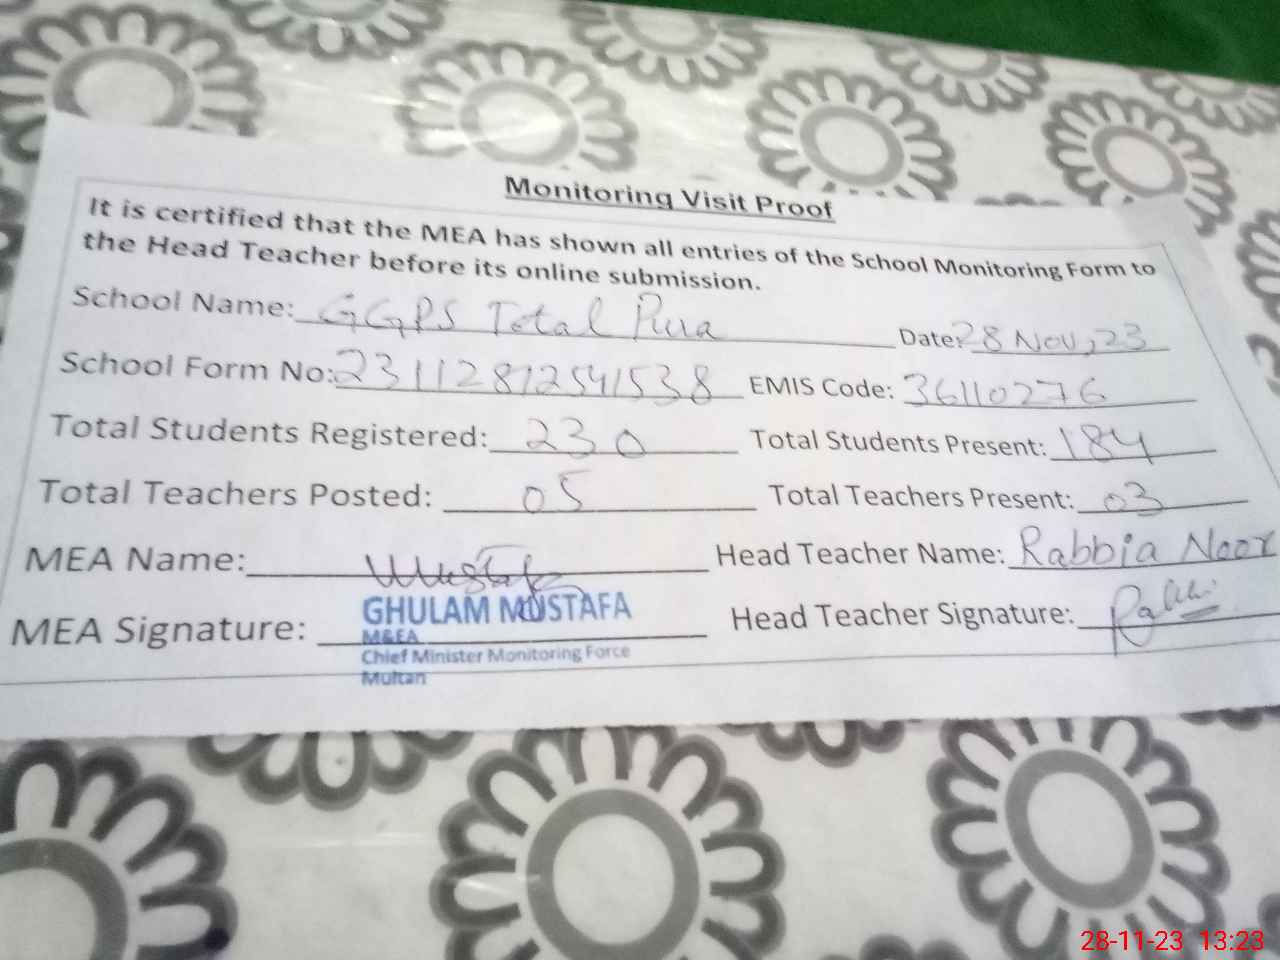 Monitoring Visit Proof
It is certified that the MEA has shown all entries of the School Monitoring Form to
the Head Teacher before its online submission.
School Name: GGPS Total Pura Date: 28 Nov, 23
School Form No: 231128125415 38 EMIS Code: 36110276
Total Students Registered: 230 Total Students Present: 184
Total Teachers Posted: 05 Total Teachers Present: 03
MEA Name: Mustafa Head Teacher Name: Rabbia Noor
GHULAM MUSTAFA
MEA Signature: Head Teacher Signature: Rabbi
M&EA
Chief Minister Monitoring Force
Multan
28-11-23 13:23